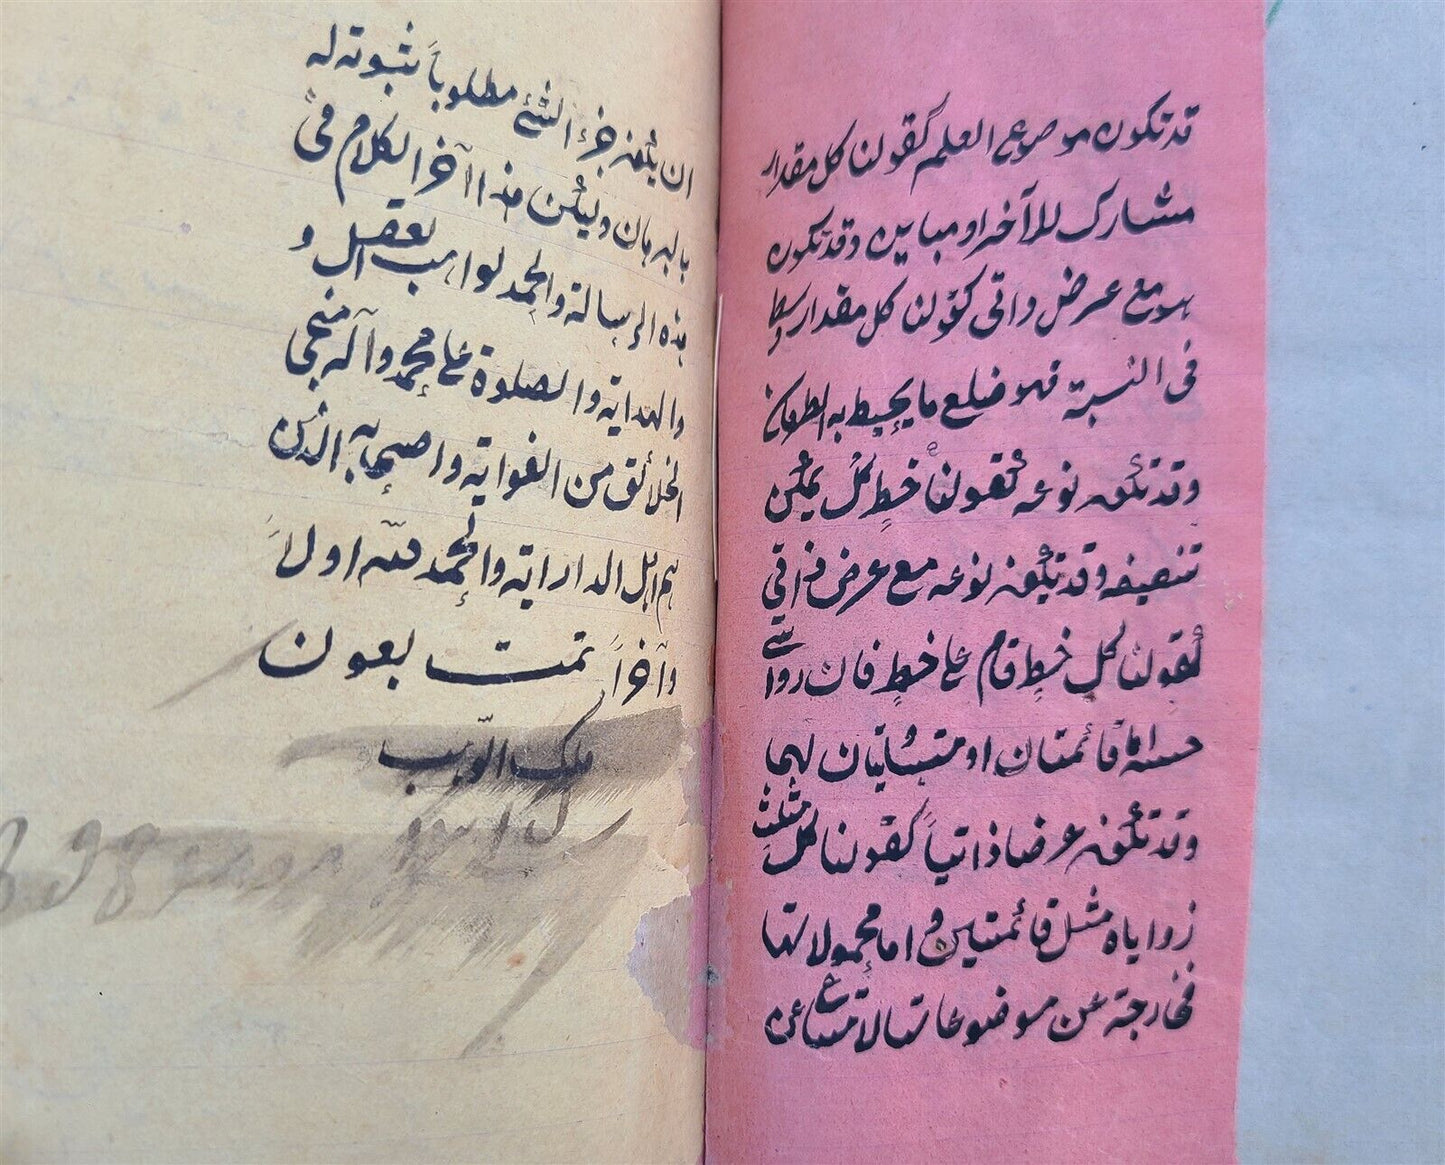 قد تكون موضوع العلم كقولنا كل مقدار
مشارك للآخر او مباين وقد تكون
هو مع عرض ذاتى كقولنا كل مقدار وسط
فى النسبة فهو ضلع ما يحيط به الطرفان
وقد تكون نوعه كقولنا خط كل يمكن
تنصيفه وقد تكون نوعه مع عرض ذاتي
كقولنا كل خط قام على خط فان زوايتى
جنبيه قائمتان او متساويتان لهما
وقد تكون عرضا ذاتياً كقولنا كل مثلث
زواياه مثل قائمتين و اما محمولاتها
فخارجة عن موضوعاتها لامتناع
ان يكون جزء الشئ مطلوباً ثبوته له
بالبرهان وليكن هذا آخر الكلام في
هذه الرسالة والحمد لواهب العقل و
والهداية والصلوة على محمد وآله منجى
الخلائق من الغواية واصحابه الذين
هم اهل الدراية والحمد لله اولاً
وآخراً تمت بعون
ملك الوهب